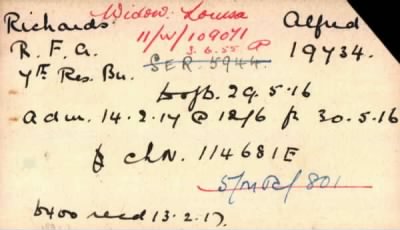 Richards Widow: Louisa Alfred
R. F. A. 11/W/109071 19734.
3.6.55
7th Res. Bn. SER. 5944.
29.5.16
adm. 14.2.17 @ 12/6 fr 30.5.16
ChN. 114681E
5/MP/801
6400 recd 13.2.17.